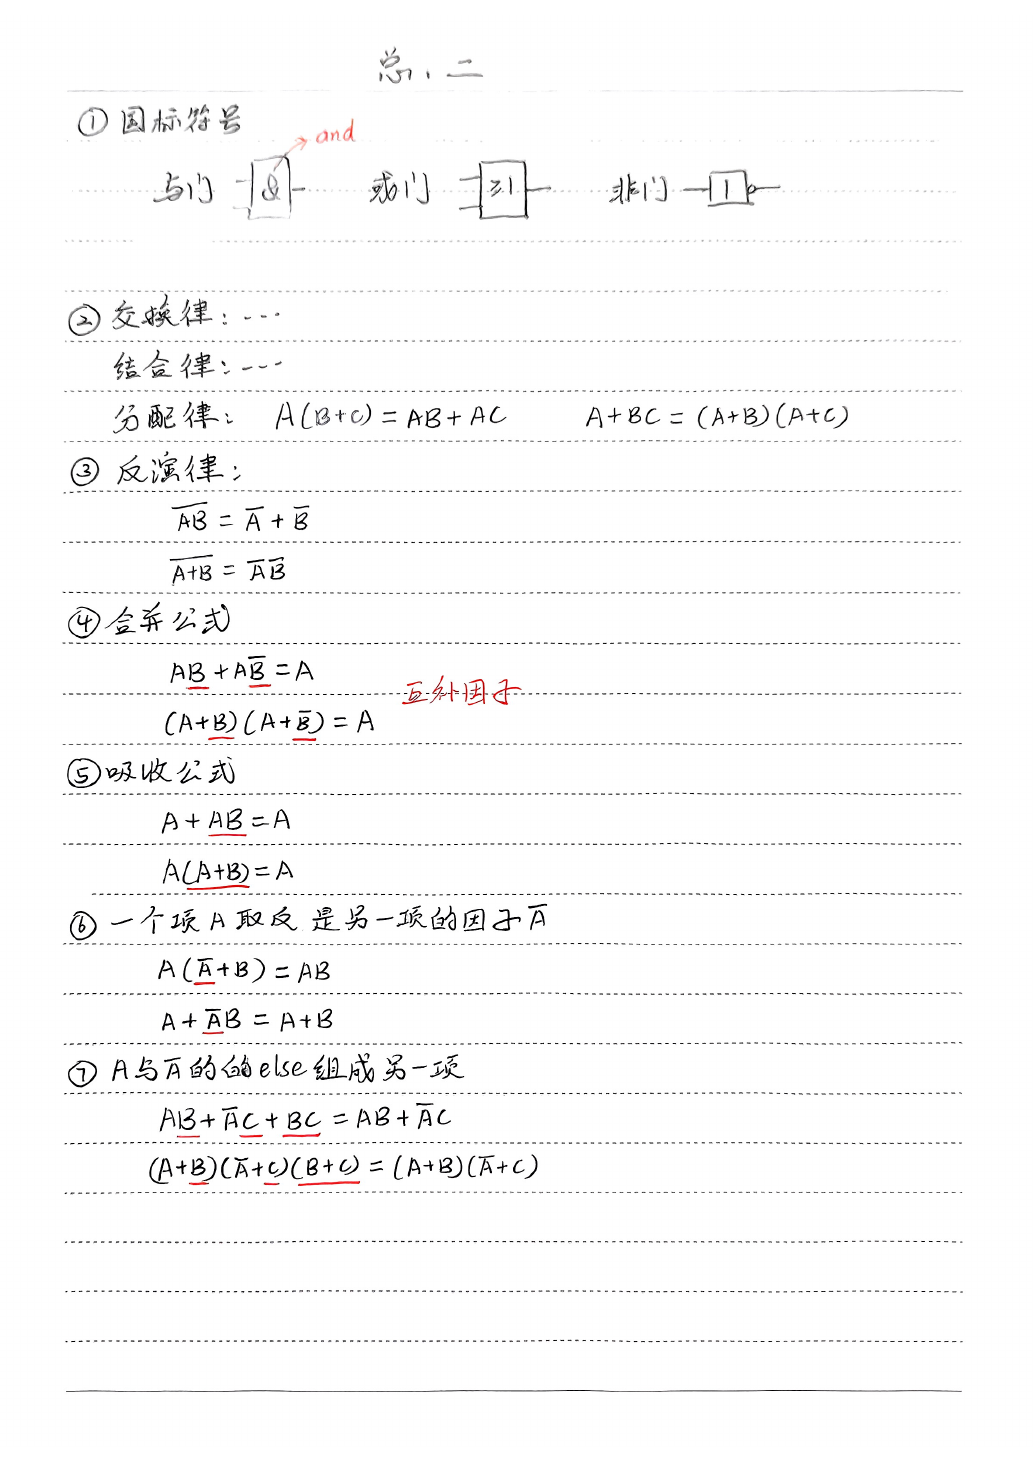 总、二
① 国标符号
and
与门 & 或门 ≥1 非门 1
② 交换律:---
结合律:---
分配律: A(B+C)=AB+AC A+BC=(A+B)(A+C)
③ 反演律:
A̅B̅ = A̅ + B̅
A̅+̅B̅ = A̅ B̅
④ 合并公式
AB+AB̅=A
互补因子
(A+B)(A+B̅)=A
⑤ 吸收公式
A+AB=A
A(A+B)=A
⑥ 一个项A取反是另一项的因子A̅
A(A̅+B)=AB
A+A̅B=A+B
⑦ A与A̅的的else组成另一项
AB+A̅C+BC=AB+A̅C
(A+B)(A̅+C)(B+C)=(A+B)(A̅+C)